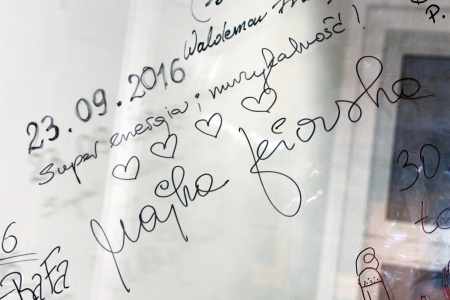 Waldemar
P.
23.09.2016
Super energia i muzykalność!
♡ ♡ ♡ ♡
Majka Jeżowska
30
to
6
RaFa